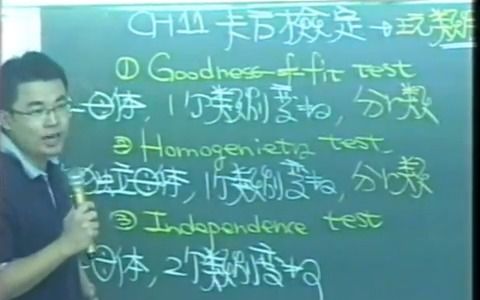 CH11 卡方檢定 → 玩數
① Goodness-of-fit test
一母体, 1个類別變數, 分r類
② Homogeniety test
独立母体, 1个類別變數, 分r類
③ Independence test
一母体, 2个類別變數